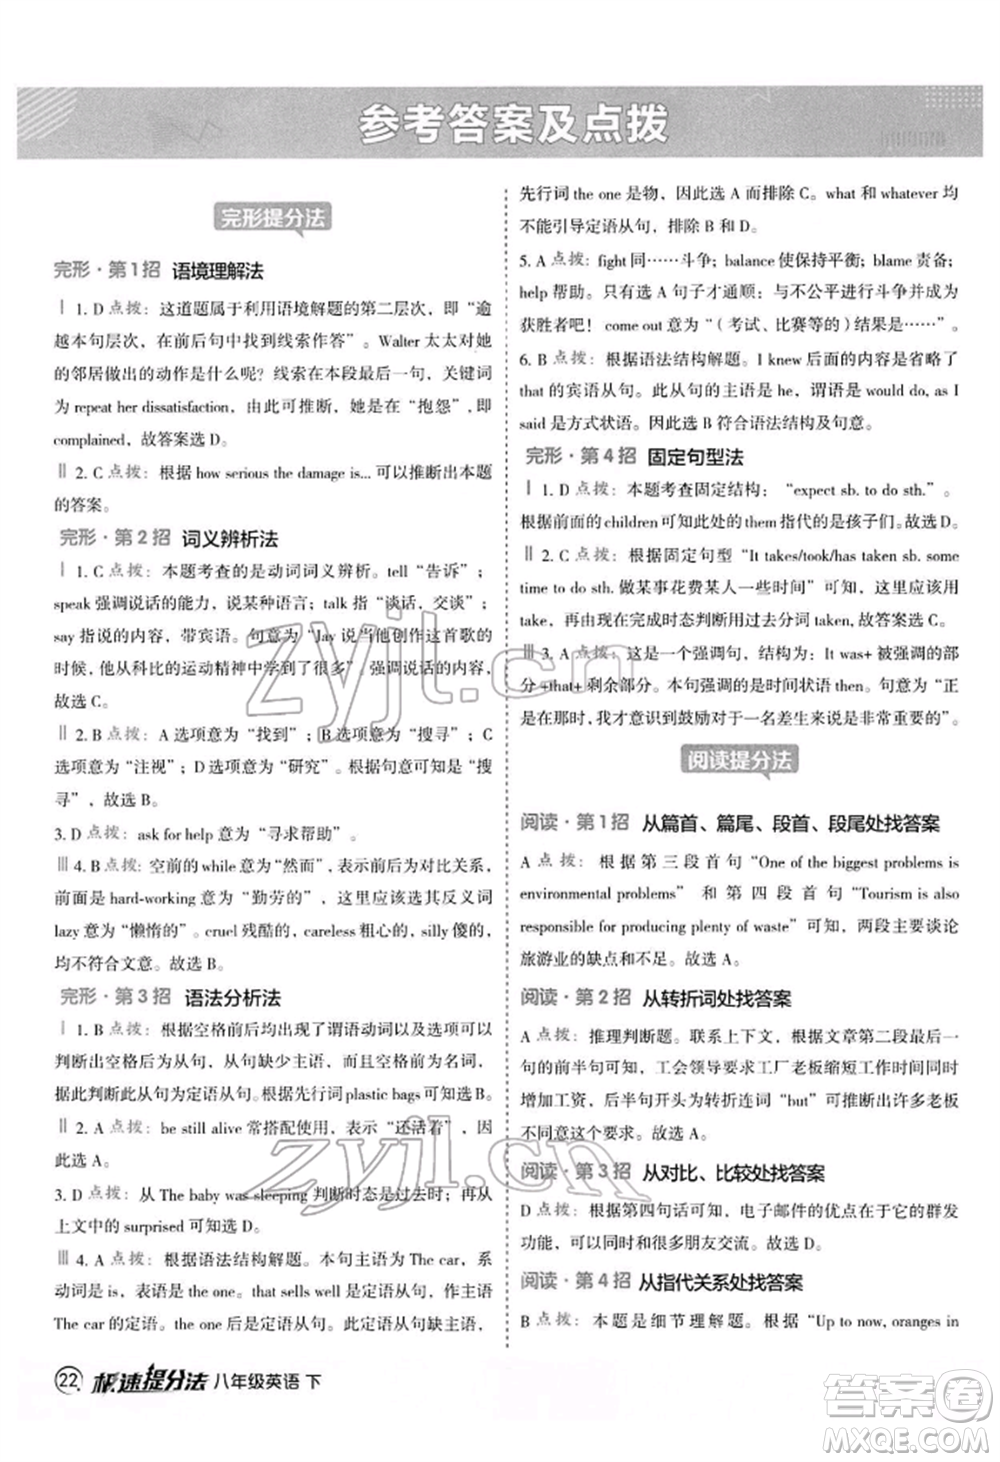 参考答案及点拨
完形提分法
完形·第1招 语境理解法
Ⅰ 1. D 点拨：这道题属于利用语境解题的第二层次，即“逾
越本句层次，在前后句中找到线索作答”。Walter 太太对她
的邻居做出的动作是什么呢？线索在本段最后一句，关键词
为 repeat her dissatisfaction，由此可推断，她是在“抱怨”，即
complained，故答案选 D。
Ⅱ 2. C 点拨：根据 how serious the damage is... 可以推断出本题
的答案。
完形·第2招 词义辨析法
Ⅰ 1. C 点拨：本题考查的是动词词义辨析。tell “告诉”；
speak 强调说话的能力，说某种语言；talk 指“谈话，交谈”；
say 指说的内容，带宾语。句意为“Jay 说当他创作这首歌的
时候，他从科比的运动精神中学到了很多”。强调说话的内容，
故选 C。
Ⅱ 2. B 点拨：A 选项意为“找到”；B 选项意为“搜寻”；C
选项意为“注视”；D 选项意为“研究”。根据句意可知是“搜
寻”，故选 B。
3. D 点拨：ask for help 意为“寻求帮助”。
Ⅲ 4. B 点拨：空前的 while 意为“然而”，表示前后对比关系，
前面的 hard-working 意为“勤劳的”，这里应该选其反义词
lazy 意为“懒惰的”。cruel 残酷的，careless 粗心的，silly 傻的，
均不符合文意。故选 B。
完形·第3招 语法分析法
Ⅰ 1. B 点拨：根据空格前后都出现了谓语动词以及标点可以
判断出空格后为从句，从句缺少主语，而且空格前为名词，
据此判断此从句为定语从句。根据先行词 plastic bags 可知选 B。
Ⅱ 2. A 点拨：be still alive 常搭配使用，表示“还活着”，因
此选 A。
3. D 点拨：从 The baby was sleeping 判断时态是过去时；再从
上文中的 surprised 可知选 D。
Ⅲ 4. A 点拨：根据语法结构解题。本句主语为 The car，系
动词是 is，表语是 white。that sells well 是定语从句，作主语
The car 的定语。one 后是定语从句。此定语从句缺主语，
先行词 the one 是物，因此选 A 而排除 C。what 和 whatever 均
不能引导定语从句，排除 B、D。
5. A 点拨：fight 同……斗争；balance 使保持平衡；blame 责备；
help 帮助。只有选 A 句子才通顺：与不公平进行斗争并成为
获胜者吧！come out 意为“（考试、比赛等的）结果是……”。
6. B 点拨：根据语法结构解题。I knew 后面的内容是省略了
that 的宾语从句。此从句的主语是 he，谓语是 would do, as I
said 是方式状语。因此选 B 符合语法结构及句意。
完形·第4招 固定句型法
Ⅰ 1. D 点拨：本题考查固定结构：“expect sb. to do sth.”。
根据前面的 children 可知此处的 them 指代的是孩子们。故选 D。
Ⅱ 2. C 点拨：根据固定句型“It takes/took/has taken sb. some
time to do sth. 做某事花费某人一些时间”可知，这里应该用
take，再由现在完成时态判断用过去分词 taken, 故答案选 C。
Ⅲ 3. A 点拨：这是一个强调句，结构为：It was+ 被强调部
分 +that+ 剩余部分。本句强调的是时间状语 then。句意为“正
是在那时，我才意识到鼓励对于一名差生来说是非常重要的”。
阅读提分法
阅读·第1招 从篇首、篇尾、段首、段尾处找答案
A 点拨：根据第三段首句“One of the biggest problems is
environmental problems” 和第四段首句“Tourism is also
responsible for producing plenty of waste”可知，两段文章谈论
旅游业的缺点和不足。故选 A。
阅读·第2招 从转折词处找答案
A 点拨：推理判断题。联系上下文，根据文章第二段最后一
句的前半句可知，工会领导要求工厂老板缩短工作时间
增加工资，后半句开头为转折连词“but”可推断出许多老板
不同意这个要求。故选 A。
阅读·第3招 从对比、比较处找答案
D 点拨：根据第四句话可知，电子邮件的优点在于它的群发
功能，可以和更多朋友交流。故选 D。
阅读·第4招 从指代关系处找答案
B 点拨：本题是细节理解题。根据“Up to now, oranges in
22 极速提分法 八年级英语 下
zyjl.cn
zyjl.cn
答案圈
MXQE.COM